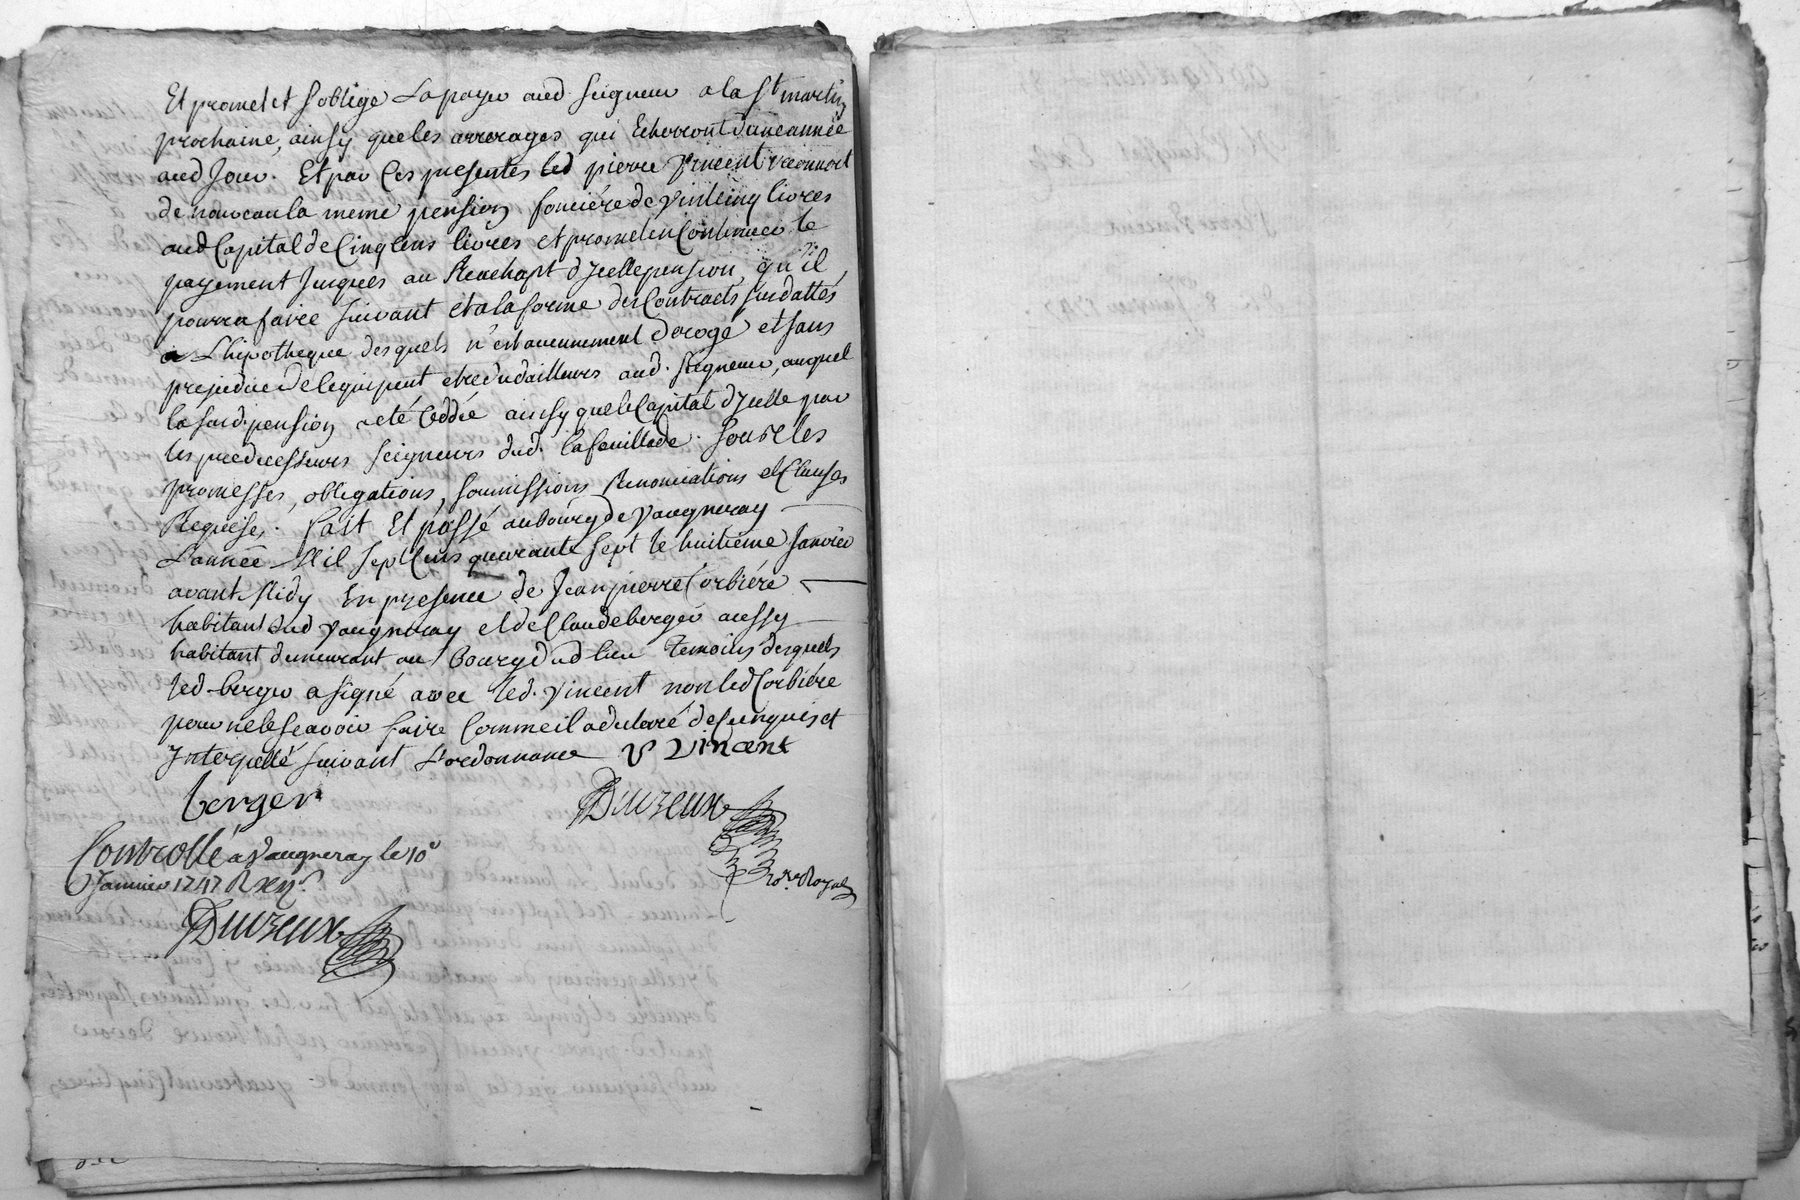 Et promet et s'oblige La payer aud. seigneur a la St martin
prochaine, ainsy que les arrerages qui Echerront d'une année
aud Jour. Et par Ces presentes led pierre Vincent reconnoit
de nouveau la meme pension fonciére de vint cinq livres
aud Capital de Cinq Cens livres et promet en Continuer le
payement Jusques au Reachapt d'ycelle pension, qu'il
pourra faire suivant et a la forme des Contracts susdattés
a L'hipotheque desquels n'est aucunement derogé et sans
prejudice de ce qui peut etre du d'ailleurs aud. seigneur, auquel
la susd. pension a eté Ceddée ainsy que le Capital d'ycelle par
les predecesseurs seigneurs dud. lafeuillade. sous les
promesses, obligations, soumissions Renonciations et Clauses
Requises. fait Et passé au bourg de Vaugneray
L'année Mil sept Cens quarante sept le huitieme Janvier
avant Midy En presence de Jean pierre Corbiére
habitant dud Vaugneray et de Claude berger aussy
habitant demeurant au Bourg dud lieu Temoins desquels
led. berger a signé avec led. Vincent non led Corbiére
pour ne le sçavoir faire Comme il a declaré de Ce enquis et
Interpellé suivant L'ordonnance P Vincent
berger
Duvzeux
Controllé a Vaugneray le 10e
Janvier 1747 R
Royal
Duvzeux